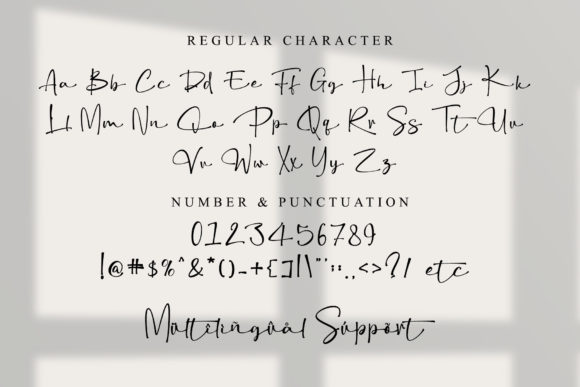 REGULAR CHARACTER
Aa Bb Cc Dd Ee Ff Gg Hh Ii Jj Kk
Ll Mm Nn Oo Pp Qq Rr Ss Tt Uu
Vv Ww Xx Yy Zz
NUMBER & PUNCTUATION
0123456789
!@#$%^&*()_-+{[]|\"':;.,<>?/ etc
Múltîliñgûål Súppört